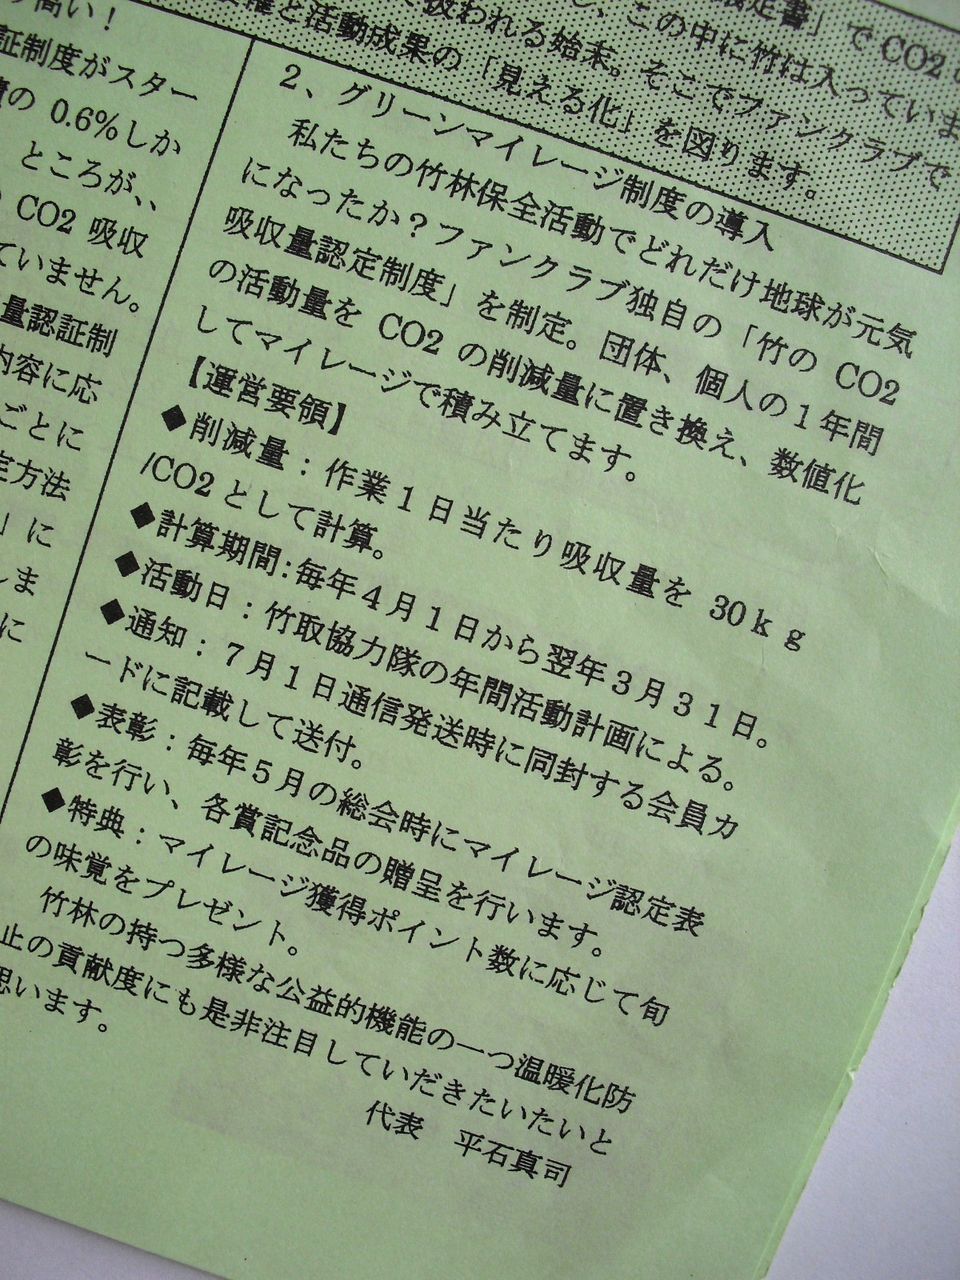 高い！
証制度がスター
の 0.6%しか
ところが、、
CO2 吸収
ていません。
量認証制
内容に応
ごとに
定方法
」に
しま
に
定書」で CO2
、この中に竹は入っていま
で扱われる始末。そこでファンクラブで
と活動成果の「見える化」を図ります。
2、グリーンマイレージ制度の導入
私たちの竹林保全活動でどれだけ地球が元気
になったか？ファンクラブ独自の「竹の CO2
吸収量認定制度」を制定。団体、個人の１年間
の活動量を CO2 の削減量に置き換え、数値化
してマイレージで積み立てます。
【運営要領】
◆削減量：作業１日当たり吸収量を 30ｋｇ
/CO2 として計算。
◆計算期間:毎年４月１日から翌年３月３１日。
◆活動日：竹取協力隊の年間活動計画による。
◆通知：７月１日通信発送時に同封する会員カ
ードに記載して送付。
◆表彰：毎年５月の総会時にマイレージ認定表
彰を行い、各賞記念品の贈呈を行います。
◆特典：マイレージ獲得ポイント数に応じて旬
の味覚をプレゼント。
竹林の持つ多様な公益的機能の一つ温暖化防
止の貢献度にも是非注目していだきたいたいと
思います。
代表　平石真司